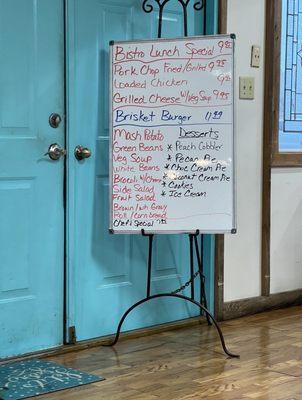 Bistro Lunch Special 9.95
Pork Chop Fried/Grilled 9.95
Loaded Chicken
Grilled Cheese w/Veg Soup 9.95
Brisket Burger 11.95
Mash Potato
Green Beans
Veg Soup
White Beans
Broccoli w/Cheese
Side Salad
Fruit Salad
Brown/wh Gravy
Roll/cornbread
Chef's Special
Desserts
* Peach Cobbler
* Pecan Pie
* Choc Cream Pie
* Coconut Cream Pie
* Cookies
* Ice Cream